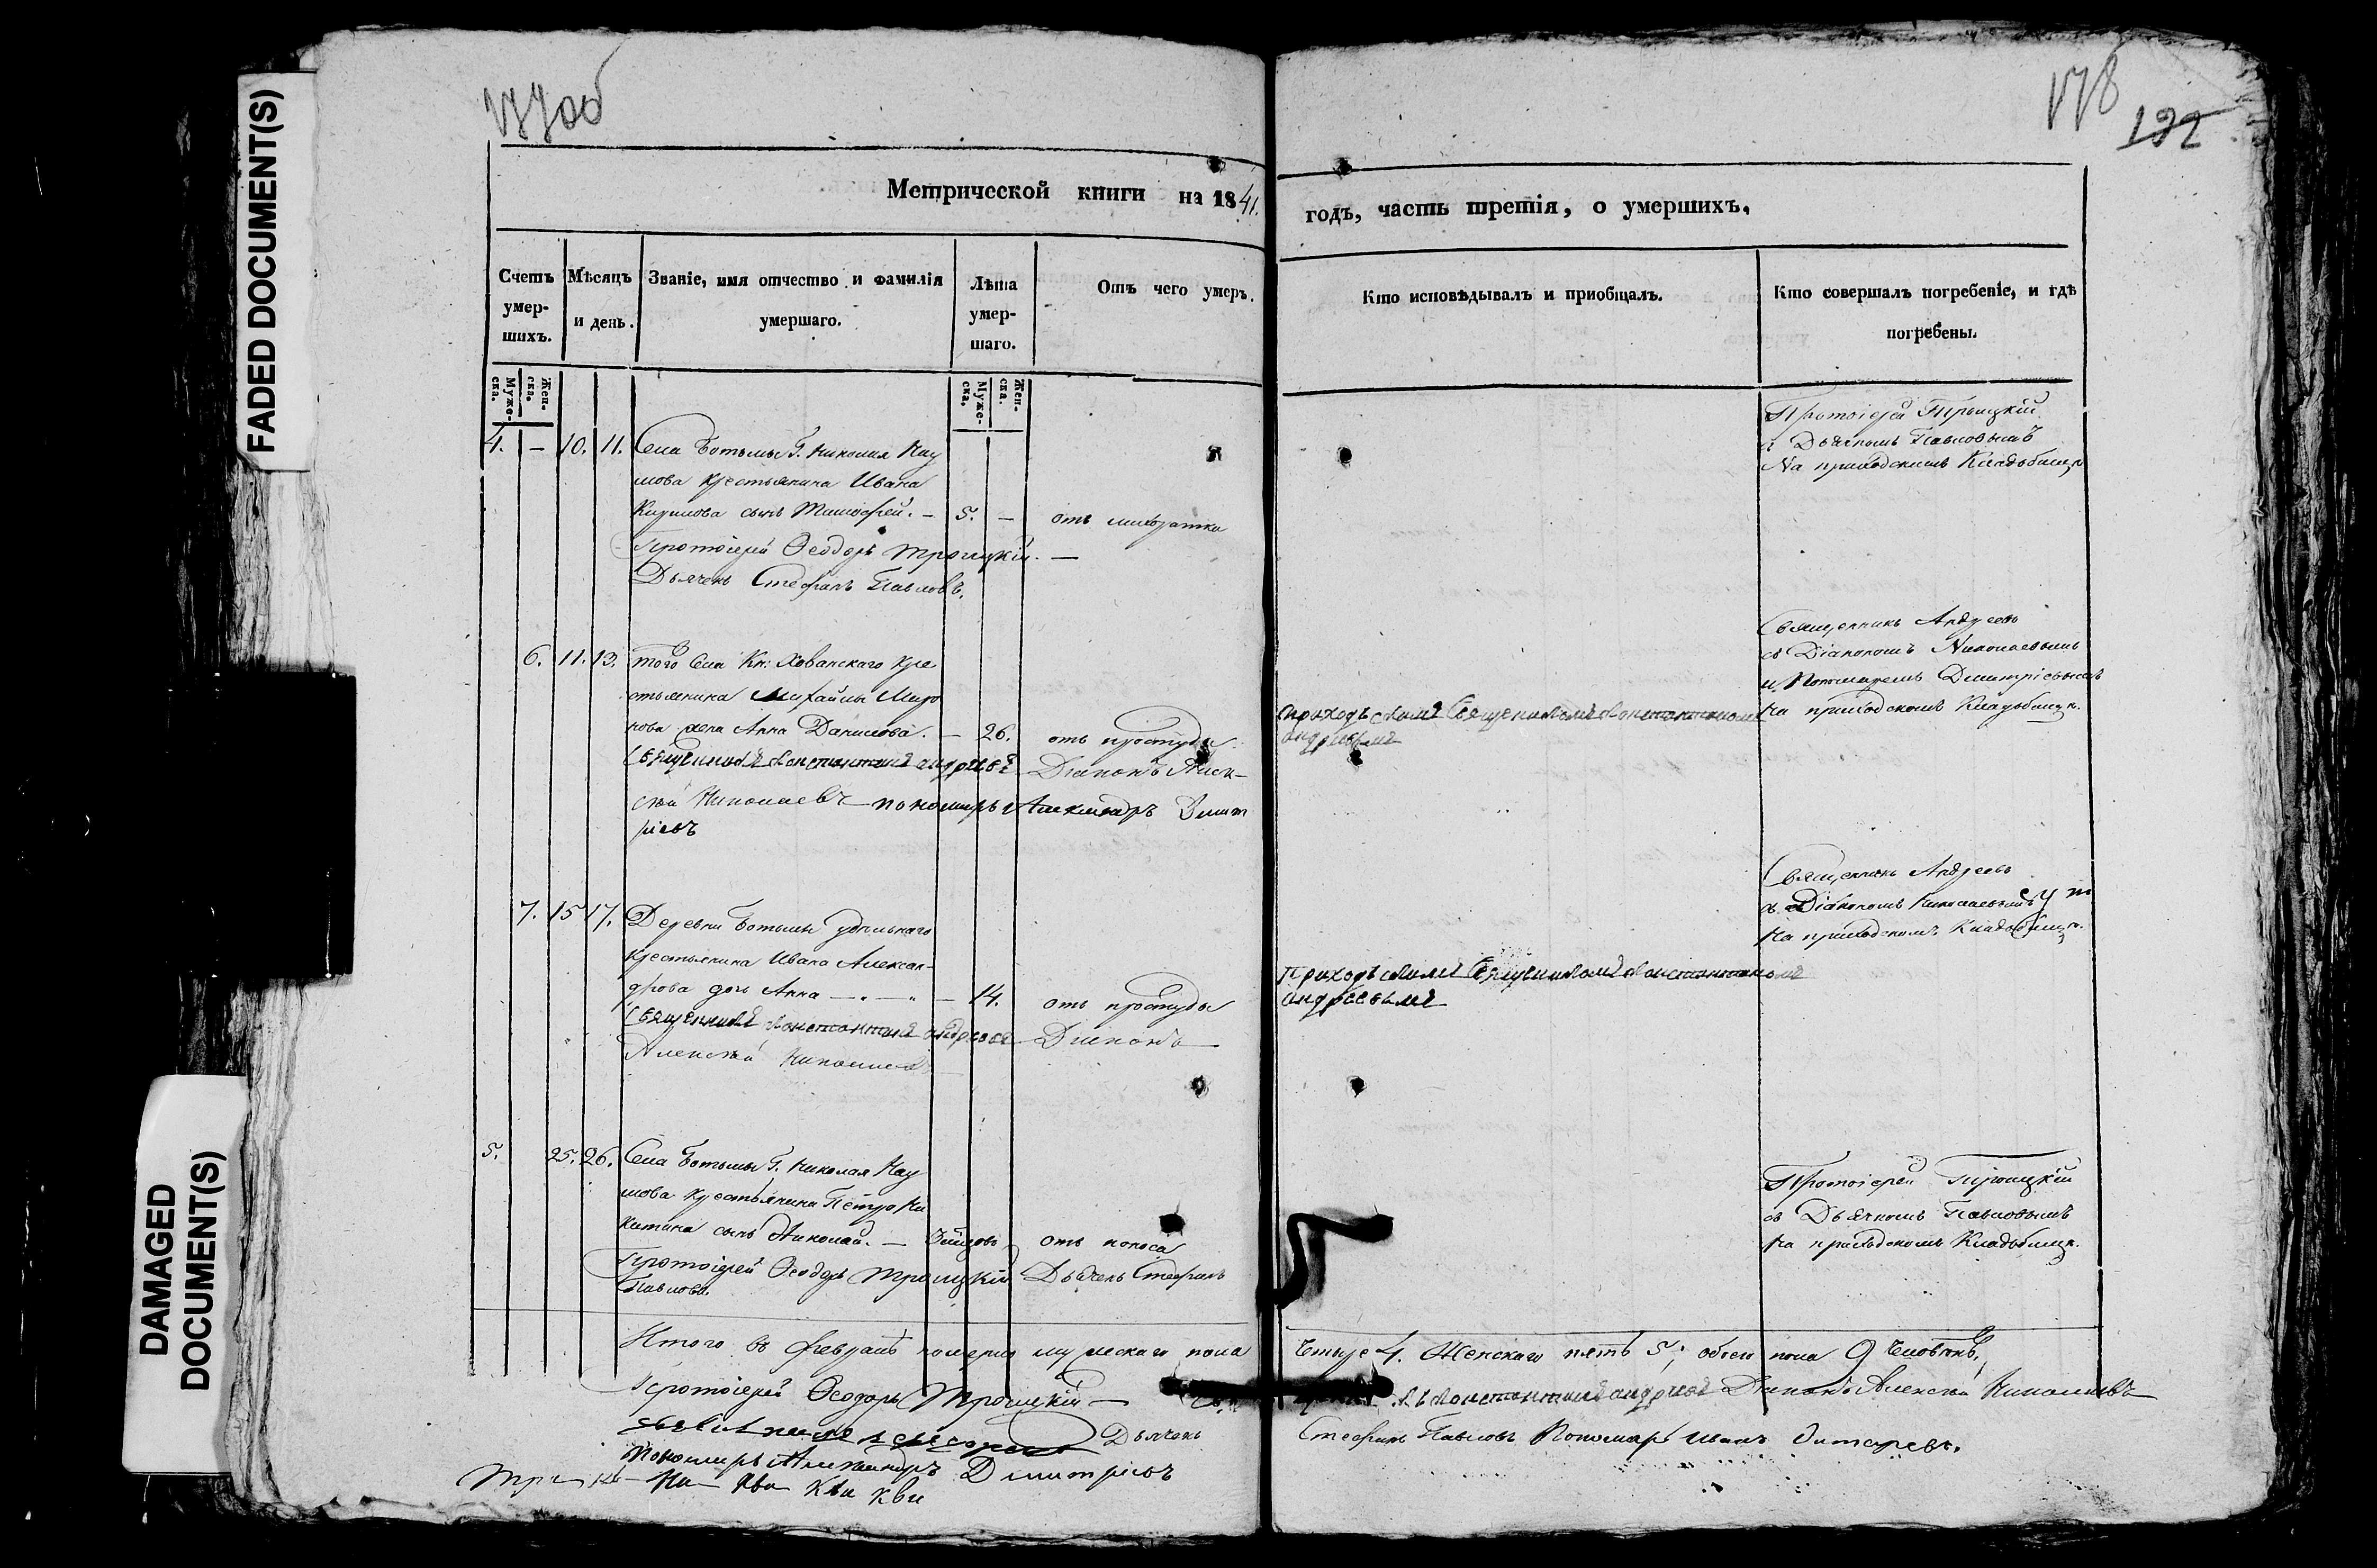 FADED DOCUMENT(S)
DAMAGED DOCUMENT(S)
177об
178
192
Метрической книги на 1841.
годъ, часть третія, о умершихъ.
Счетъ умер-
шихъ.
Муже-
ска.
Жен-
ска.
Мѣсяцъ
и день.
Званіе, имя отчество и фамилія
умершаго.
Лѣта
умер-
шаго.
Муже-
ска.
Жен-
ска.
Отъ чего умеръ.
Кто исповѣдывалъ и приобщалъ.
Кто совершалъ погребеніе, и гдѣ
погребены.
4. — 10. 11. Села Ботьмы Г. Николая Нау
мова крестьянина Ивана
Кирилова сынъ Тимофей. — 5. — отъ лихоратки
Протоіерей Ѳеодоръ Троицкій. —
Дьячекъ Стефанъ Павловъ.
Протоіерей Троицкій
съ Дьячкомъ Павловымъ
На приходскомъ Кладбищѣ
6. 11. 13. того Села Кн: Хованскаго Кре
стьянина Михайлы Миро
нова жена Анна Данилова. — 26. отъ простуды
Священникъ Константинъ Андреевъ Діаконъ Алек-
сѣй Николаевъ пономарь Александръ Димит
ріевъ
приходъскимъ Священникомъ Константиномъ
Андреевымъ
Священникъ Андреевъ
съ Діакономъ Николаевымъ
и Пономаремъ Димитріевымъ
На приходскомъ Кладбищѣ.
7. 15 17. Деревни Ботьмы удѣльнаго
Крестьянина Ивана Алексан-
дрова дочь Анна — — 14. отъ простуды
Священникъ Константинъ Андреевъ Діаконъ
Алексѣй Николаевъ
Приходъскимъ Священникомъ Константиномъ
Андреевымъ
Священникъ Андреевъ
съ Діакономъ Николаевымъ
На приходскомъ Кладбищѣ.
5. 25. 26. Села Ботьмы Г. Николая Нау
мова крестьянина Петра Ни
китина сынъ Николай. — отъ поноса
Протоіерей Ѳеодоръ Троицкій Дьячекъ Стефанъ
Павловъ
Протоіерей Троицкій
съ Дьячкомъ Павловымъ
На приходскомъ Кладбищѣ.
Итого въ февралѣ померло мужескаго пола четыре 4. Женскаго пять 5; обоего пола 9 человѣкъ.
Протоіерей Ѳеодоръ Троицкій — Константинъ Андреевъ Діаконъ Алексѣй Николаевъ
Дьячекъ Стефанъ Павловъ Пономарь Иванъ
Пономарь Александръ Димитріевъ